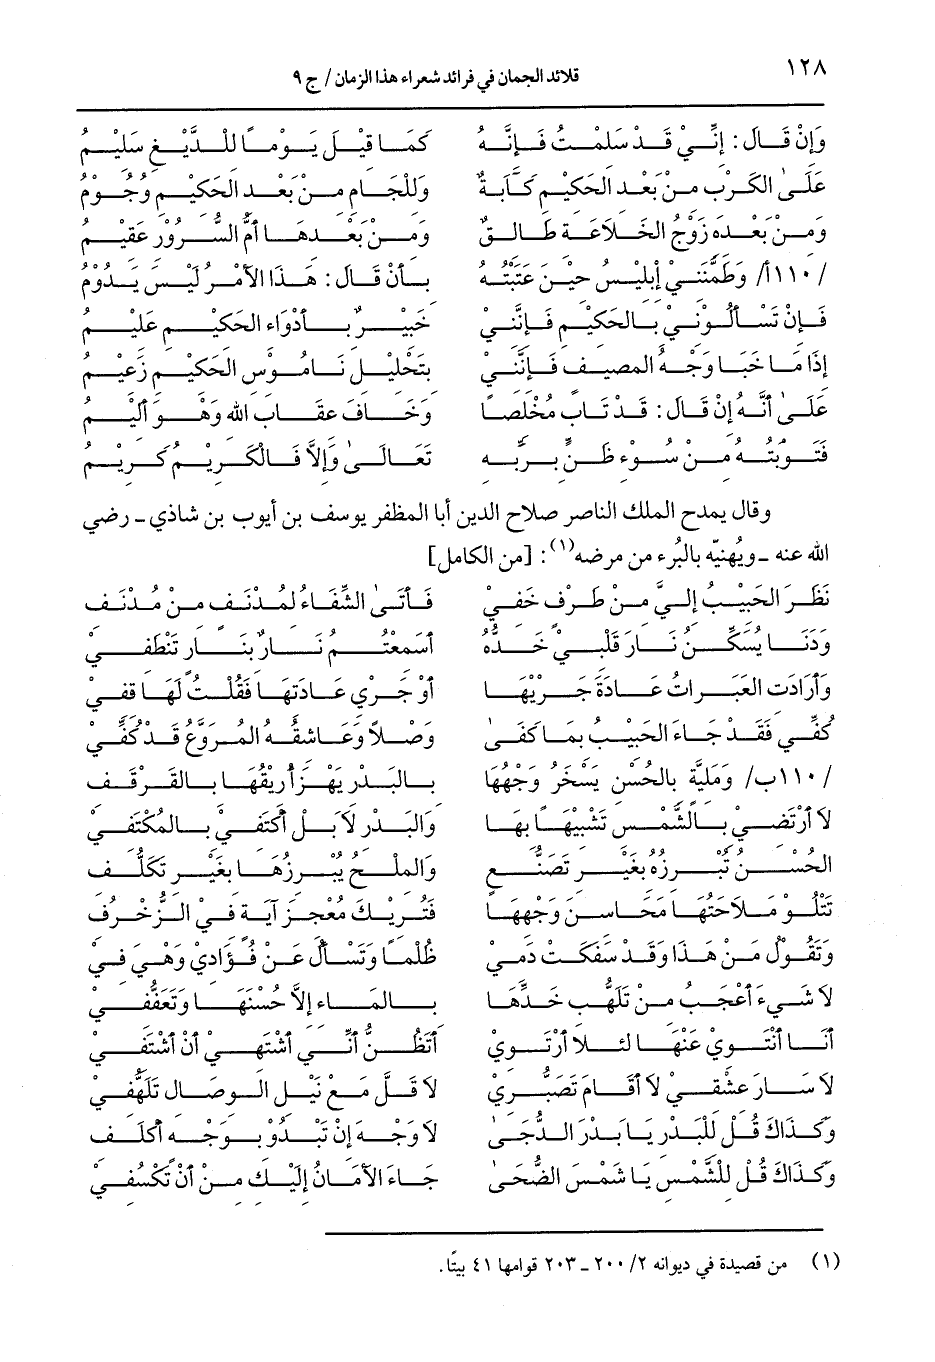 ١٢٨ قلائد الجمان في فرائد شعراء هذا الزمان / ج ٩
وَإِنْ قَالَ: إِنِّيْ قَدْ سَلِمْتُ فَإِنَّهُ كَمَا قِيْلَ يَوْمًا لِلَّدِيْغِ سَلِيْمُ
عَلَىٰ الكَرْبِ مِنْ بَعْدِ الحَكِيْمِ كَآبَةٌ وَلِلْجَامِ مِنْ بَعْدِ الحَكِيْمِ وُجُوْمُ
وَمِنْ بَعْدِهِ زَوْجُ الخَلاَعَةِ طَالِقٌ وَمِنْ بَعْدِهَا أُمُّ السُّرُوْرِ عَقِيْمُ
/١١٠أ/ وَطَمَّنَنِيْ إِبْلِيْسُ حِيْنَ عَتِبْتُهُ بِأَنْ قَالَ: هَذَا الأَمْرُ لَيْسَ يَدُوْمُ
فَإِنْ تَسْأَلُوْنِيْ بِالحَكِيْمِ فَإِنَّنِيْ خَبِيْرٌ بِأَدْوَاءِ الحَكِيْمِ عَلِيْمُ
إِذَا مَا خَبَا وَجْهُ المَصِيْفِ فَإِنَّنِيْ بِتَحْلِيْلِ نَامُوْسِ الحَكِيْمِ زَعِيْمُ
عَلَىٰ أَنَّهُ إِنْ قَالَ: قَدْ تَابَ مُخْلِصًا وَخَافَ عِقَابَ اللهِ وَهْوَ أَلِيْمُ
فَتَوْبَتُهُ مِنْ سُوْءِ ظَنٍّ بِرَبِّهِ تَعَالَىٰ وَإِلاَّ فَالكَرِيْمُ كَرِيْمُ
وقال يمدح الملك الناصر صلاح الدين أبا المظفر يوسف بن أيوب بن شاذي ـ رضي
الله عنه ـ ويُهنيّه بالبُرء من مرضه(١): [من الكامل]
نَظَرَ الحَبِيْبُ إِلَيَّ مِنْ طَرْفٍ خَفِيْ فَأَتَىٰ الشِّفَاءُ لِمُدْنَفٍ مِنْ مُدْنَفِ
وَدَنَا يُسَكِّنُ نَارَ قَلْبِيْ خَدُّهُ أَسَمِعْتُمُ نَارٌ بِنَارٍ تَنْطَفِيْ
وَأَرَادَتِ العَبَرَاتُ عَادَةَ جَرْيِهَا أَوْ جَرْيَ عَادَتِهَا فَقُلْتُ لَهَا قِفِيْ
كُفِّيْ فَقَدْ جَاءَ الحَبِيْبُ بِمَا كَفَىٰ وَصْلاً وَعَاشِقُهُ المُرَوَّعُ قَدْ كُفِيْ
/١١٠ب/ وَمَلِيَّةٍ بِالحُسْنِ يَسْخَرُ وَجْهُهَا بِالبَدْرِ يَهْزَأُ رِيْقُهَا بِالقَرْقَفِ
لاَ أَرْتَضِيْ بِالشَّمْسِ تَشْبِيْهًا بِهَا وَالبَدْرِ لاَ بَلْ أَكْتَفِيْ بِالمُكْتَفِيْ
الحُسْنُ تُبْرِزُهُ بِغَيْرِ تَصَنُّعٍ وَالمِلْحُ يُبْرِزُهَا بِغَيْرِ تَكَلُّفِ
تَتْلُو مَلاَحَتُهَا مَحَاسِنَ وَجْهِهَا فَتُرِيْكَ مُعْجِزَ آيَةٍ فِي الزُّخْرُفِ
وَتَقُوْلُ مَنْ هَذَا وَقَدْ سَفَكَتْ دَمِيْ ظُلْمًا وَتَسْأَلُ عَنْ فُؤَادِيْ وَهْيَ فِيْ
لاَ شَيْءَ أَعْجَبُ مِنْ تَلَهُّبِ خَدِّهَا بِالمَاءِ إِلاَّ حُسْنُهَا وَتَعَفُّفِيْ
أَنَا أَنْثَوِيْ عَنْهَا لِئَلاَّ أَرْتَوِيْ أَتَظُنُّ أَنِّيْ أَشْتَهِيْ أَنْ أَشْتَفِيْ
لاَ سَارَ عِشْقِيْ لاَ أَقَامَ تَصَبُّرِيْ لاَ قَلَّ مَعْ نَيْلِ الوِصَالِ تَلَهُّفِيْ
وَكَذَاكَ قُلْ لِلْبَدْرِ يَا بَدْرَ الدُّجَىٰ لاَ وَجْهَ إِنْ تَبْدُو بِوَجْهٍ أَكْلَفِ
وَكَذَاكَ قُلْ لِلشَّمْسِ يَا شَمْسَ الضُّحَىٰ جَاءَ الأَمَانُ إِلَيْكِ مِنْ أَنْ تُكْسَفِيْ
(١) من قصيدة في ديوانه ٢/ ٢٠٠ ـ ٢٠٣ قوامها ٤١ بيتًا.